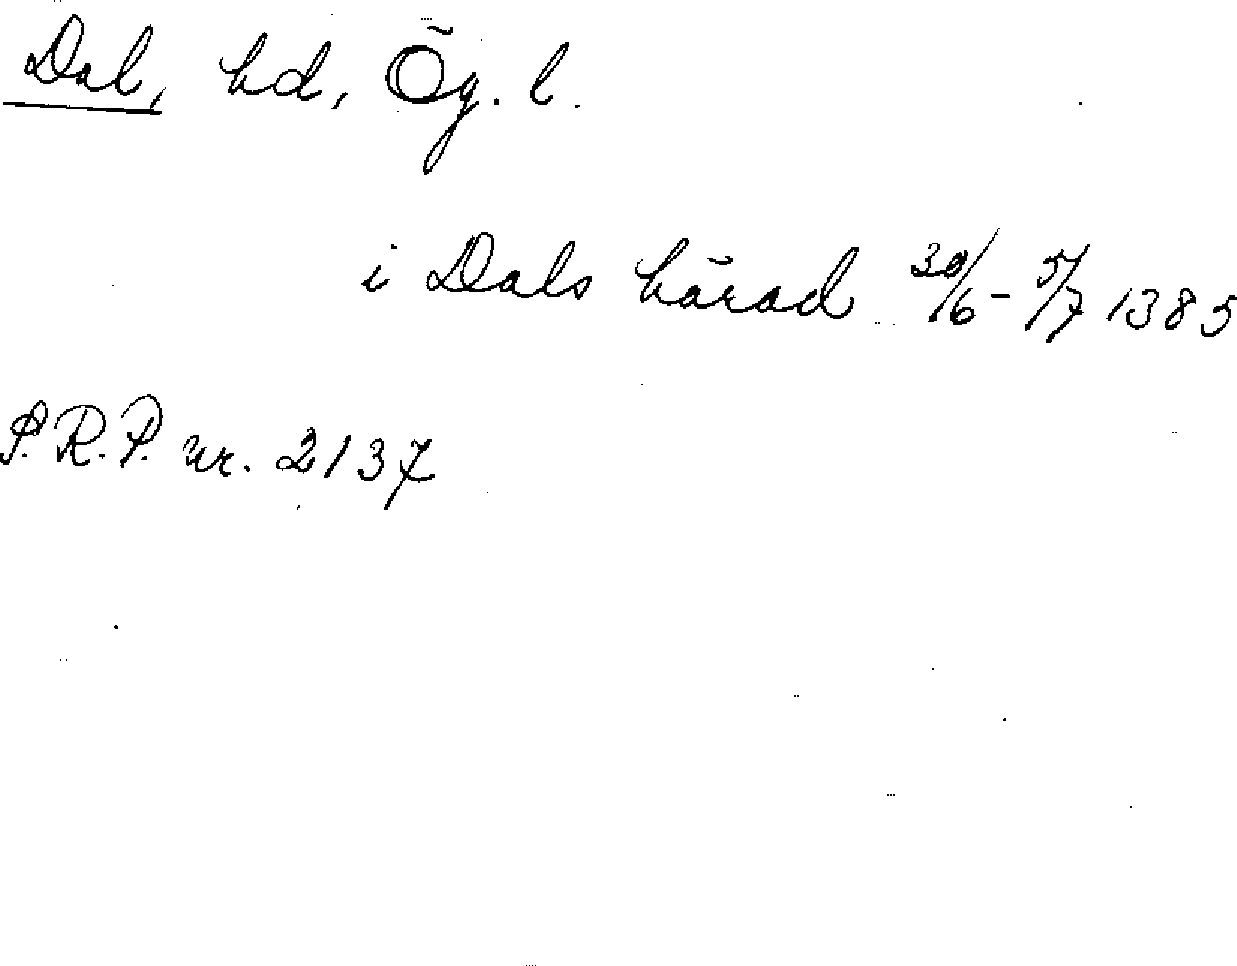 Dal, hd, Ög. l.
i Dals härad 30/6 - 5/7 1385
S.R.P. nr. 2137